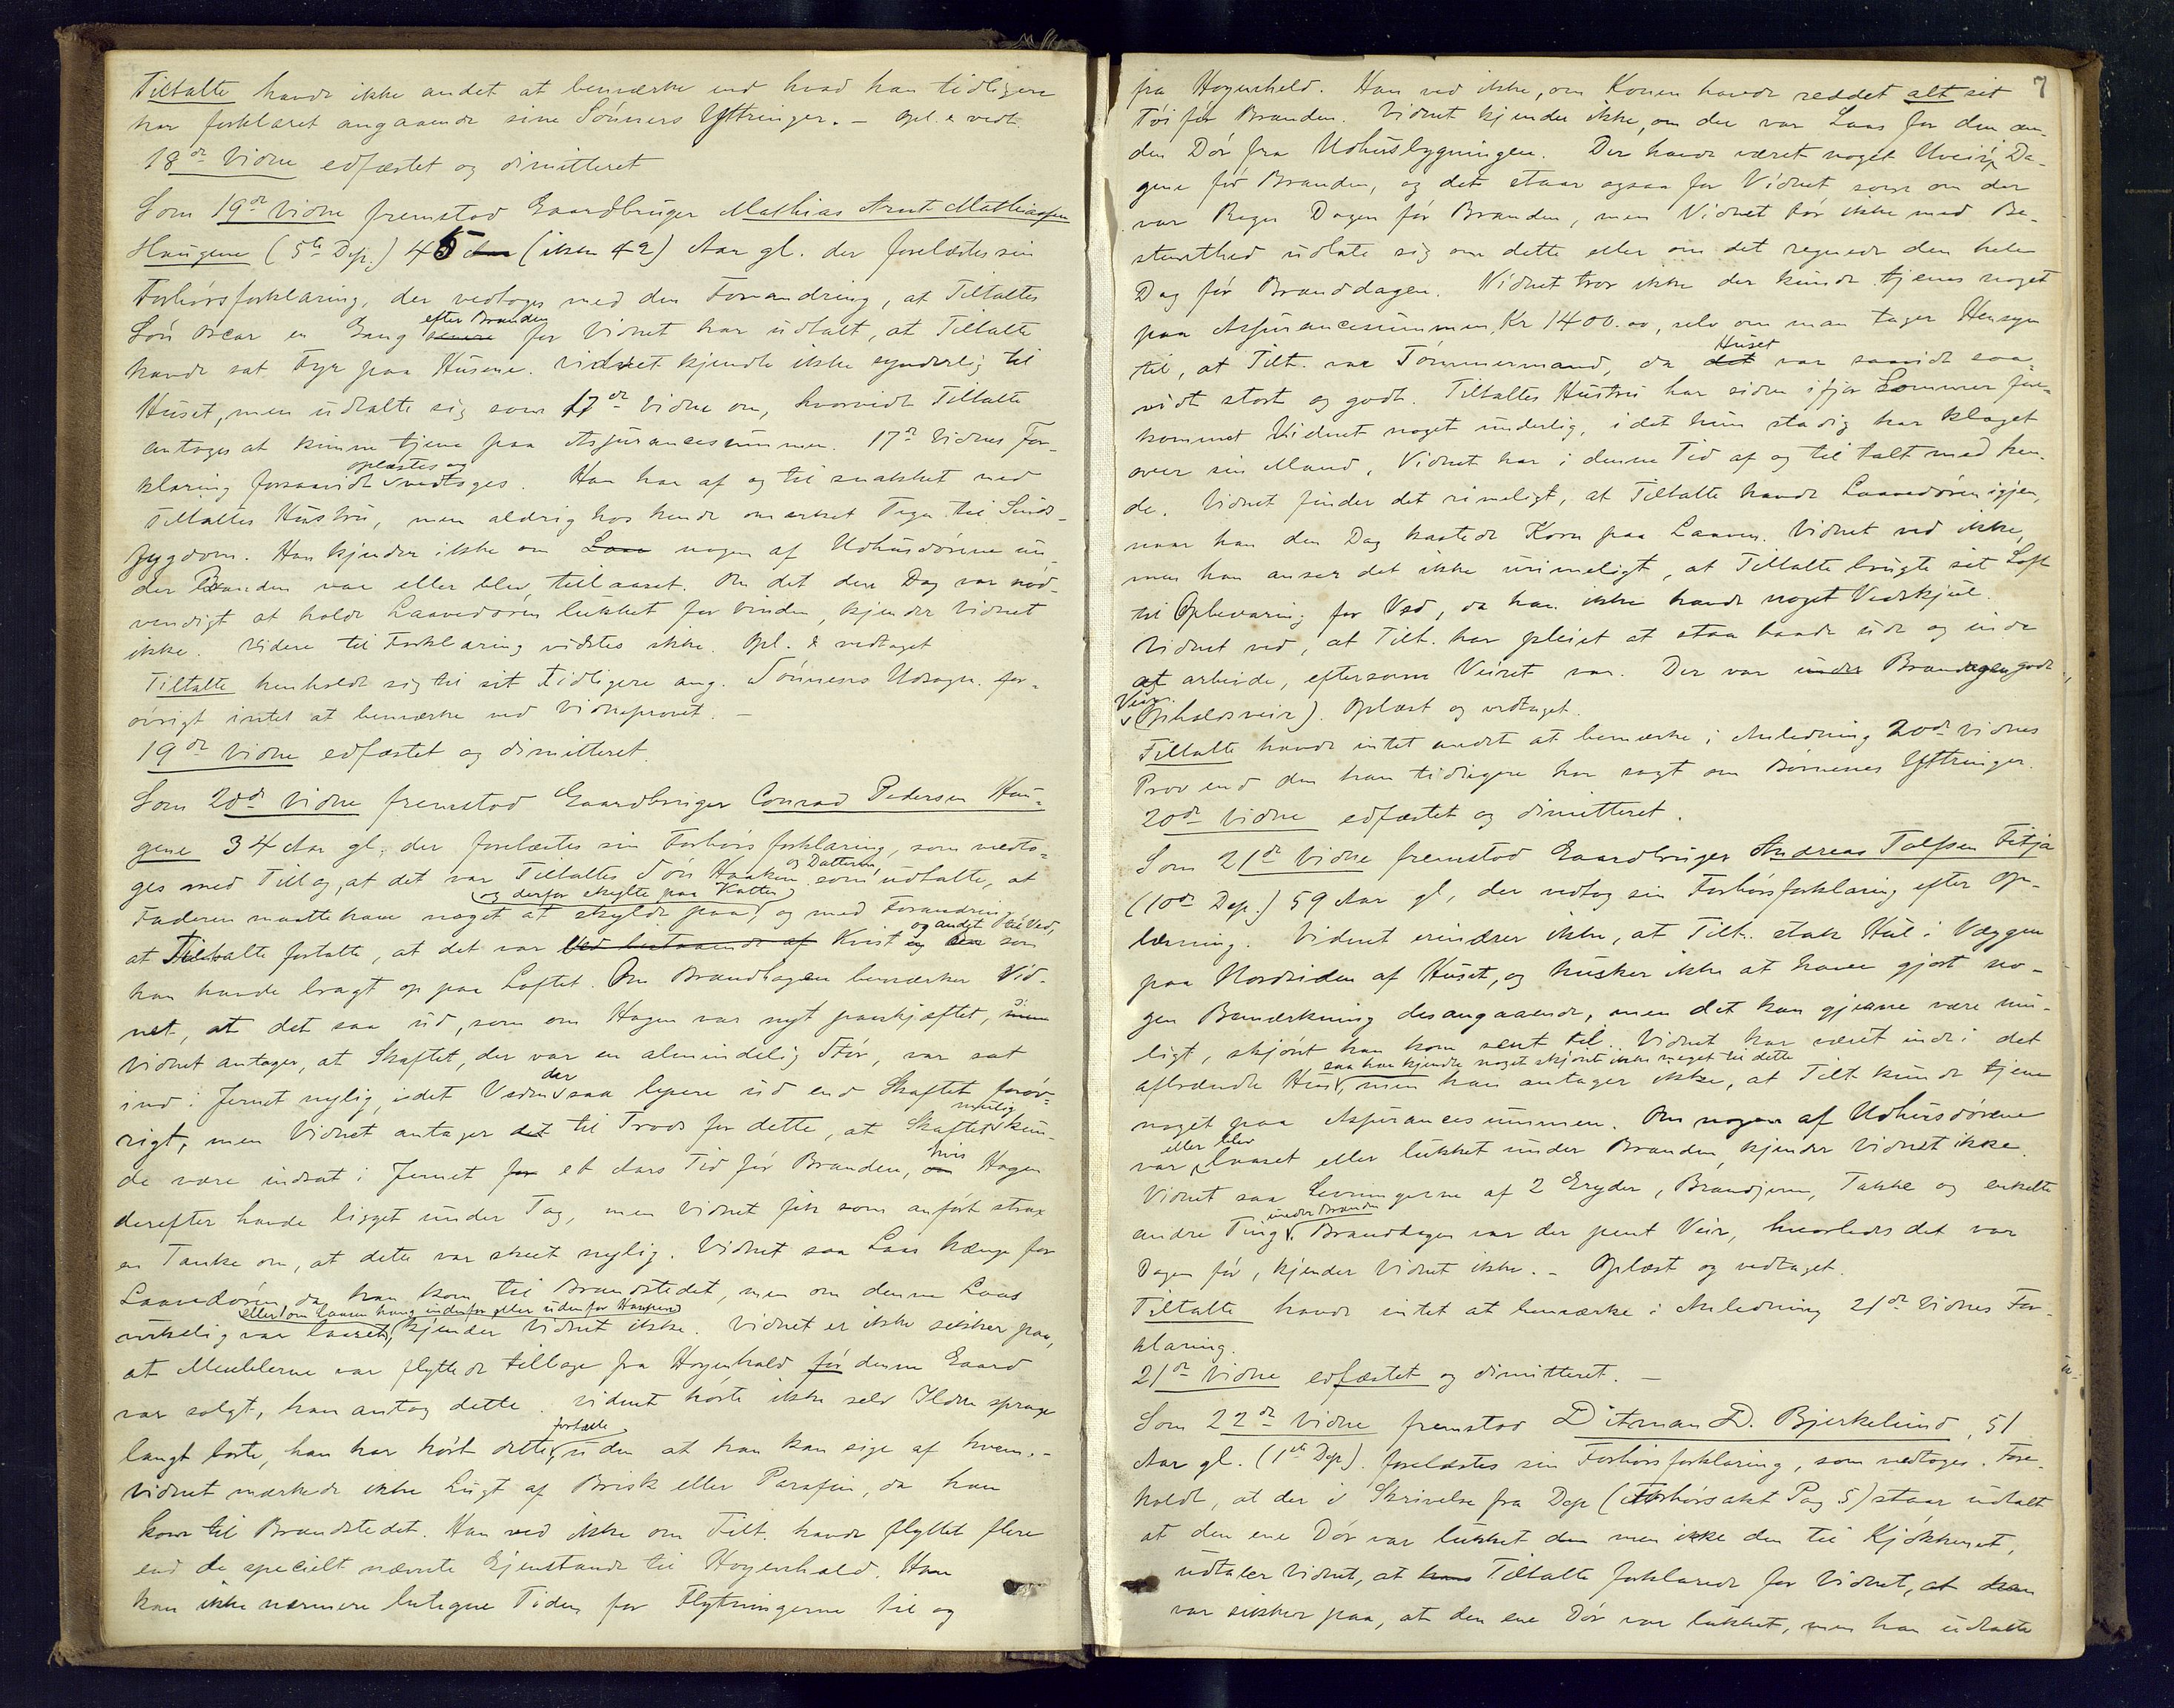 Tiltalte havde ikke andet at bemærke end hvad han tidligere
har forklaret angaaende sine Sønners Yttringer. – Opl. & vedt.
18de Vidne edfæstet og dimitteret
Som 19de Vidne fremstod Gaardbruger Mathias Arnt Mathiassen
Haugene (5te Dep.) 45 (ikke 42) Aar gl. der forelæstes sin
Forhørsforklaring, der vedtoges med den Forandring, at Tiltaltes
Søn Oscar en Gang efter Branden for Vidnet har udtalt, at Tiltalte
havde sat Fyr paa Husene. Vidnet kjendte ikke synderlig til
Huset, men udtalte sig som 17de Vidne om, hvorvidt Tiltalte
antoges at kunne tjene paa Assurancesummen. 17de Vidnes For-
klaring forsaavidt oplæstes og vedtoges. Han har af og til snakket med
Tiltaltes Hustru, men aldrig hos hende mærket Tegn til Sinds-
sygdom. Han kjender ikke om Laas nogen af Udhusdørene un-
der Branden var eller blev tillaaset. Om det den Dag var nød-
vendigt at holde Laavedøren lukket for Vinden, kjender Vidnet
ikke. Videre til Forklaring vidstes ikke. Opl. & vedtaget
Tiltalte henholdt sig til sit Tidligere ang. Sønnens Udsagn. for-
øvrigt intet at bemærke ved Vidneprovet. –
19de Vidne edfæstet og dimitteret.
Som 20de Vidne fremstod Gaardbruger Conrad Pedersen Hau-
gene 34 Aar gl. der forelæstes sin Forhørsforklaring, som vedto-
ges med Tillæg, at det var Tiltaltes Søn Haakon og Datteren, som udtalte, at
Faderen maatte have noget at skylde paa, (og derfor skyldte paa Katten) og med Forandring
at Tiltalte fortalte, at det var Ved bestaaende af Kvist og andet til Ved, som
han havde bragt op paa Loftet. Om Brandhagen bemærker Vid-
net, at det saa ud, som om Hagen var nyt paaskjæftet,
Vidnet antager, at Skaftet, der var en almindelig Stør, var sat
ind i Jernet nylig, idet Veden der saa lysere ud end Skaftet forøv-
rigt, men Vidnet antager det til Trods for dette, at Skaftet mulig kun-
de være indsat i Jernet et Aars Tid før Branden, hvis Hagen
derefter havde ligget under Tag, men Vidnet fik som anført strax
en Tanke om, at dette var skeet nylig. Vidnet saa Laas hænge for
Laavedøren, da han kom til Brandstedet, men om denne Laas
virkelig var laaset, (eller om Laasen hang indenfor eller udenfor Haspen) kjender Vidnet ikke. Vidnet er ikke sikker paa,
at Meublerne var flyttede tilbage fra Hogenhald før denne Gaard
var solgt, han antog dette. Vidnet hørte ikke selv Ilden sprage
langt borte, han har hørt dette fortælle, uden at han kan sige af hvem. –
Vidnet mærkede ikke Lugt af Brisk eller Parafin, da han
kom til Brandstedet. Han ved ikke om Tilt. havde flyttet flere
end de specielt nævnte Gjenstande til Hogenhald. Han
kan ikke nærmere betegne Tiden for Flytningerne til og
7
fra Hogenheld. Han ved ikke, om Konen havde reddet alt sit
Tøi før Branden. Vidnet kjender ikke, om der var Laas for den an-
den Dør fra Udhusbygningen. Der havde været noget Uveir Da-
gene før Branden, og det staar ogsaa for Vidnet som om der
var Regn Dagen før Branden, men Vidnet tør ikke med Be-
stemthed udlate sig om dette eller om det regnede den hele
Dag før Branddagen. Vidnet tror ikke der kunde tjenes noget
paa Assurancesummen, Kr 1400.00, selv om man tager Hensyn
til, at Tilt. var Tømmermand, da Huset var saavidt saa-
vidt stort og godt. Tiltaltes Hustru har siden ifjor Sommer fore-
kommet Vidnet noget underlig, idet hun stadig har klaget
over sin Mand. Vidnet har i denne Tid af og til talt med hen-
de. Vidnet finder det rimeligt, at Tiltalte havde Laavedøren igjen,
naar han den Dag kastede Korn paa Laaven. Vidnet ved ikke,
men han anser det ikke urimeligt, at Tiltalte brugte sit Loft
til Opbevaring for Ved, da han ikke havde noget Vedskjul.
Vidnet ved, at Tilt. har pleiet at staa baade ude og inde
at arbeide, eftersom Veiret var. Der var Brandagen godt
Veir, (Opholdsveir). Oplæst og vedtaget.
Tiltalte havde intet andet at bemærke i Anledning 20de Vidnes
Prov end den han tidligere har sagt om Børnenes Yttringer.
20de Vidne edfæstet og dimitteret.
Som 21de Vidne fremstod Gaardbruger Andreas Tolfsen Fitja
(10de Dep.) 59 Aar gl, der vedtog sin Forhørsforklaring efter Op-
læsning. Vidnet erindrer ikke, at Tilt. stak Hul i Væggen
paa Nordsiden af Huset, og husker ikke at have gjort no-
gen Bemærkning desangaaende, men det kan gjerne være mu-
ligt, skjønt han kom sent til. Vidnet har været inde i det
afbrændte Hus, saa han kjendte noget skjønt ikke meget til dette men han antager ikke, at Tilt. kunde tjene
noget paa Assurancesummen. Om nogen af Udhusdørene
var eller blev laaset eller lukket under Branden, kjender Vidnet ikke.
Vidnet saa Levningerne af 2 Gryder, Brandjern, Takke og enkelte
andre Ting under Branden. Branddagen var der pent Veir, hvorledes det var
Dagen før, kjender Vidnet ikke. – Oplæst og vedtaget.
Tiltalte havde intet at bemærke i Anledning 21de Vidnes For-
klaring.
21de Vidne edfæstet og dimitteret. –
Som 22de Vidne fremstod Ditman D. Bjerkelund, 51
Aar gl. (1ste Dep). forelæstes sin Forhørsforklaring, som vedtoges. Fore-
holdt, at der i Skrivelse fra Dep (Forhørsakt Pag 5) staar udtalt
at den ene Dør var lukket men ikke den til Kjøkkenet,
udtaler Vidnet, at Tiltalte forklarede for Vidnet, at han
var sikker paa, at den ene Dør var lukket, men han udtalte